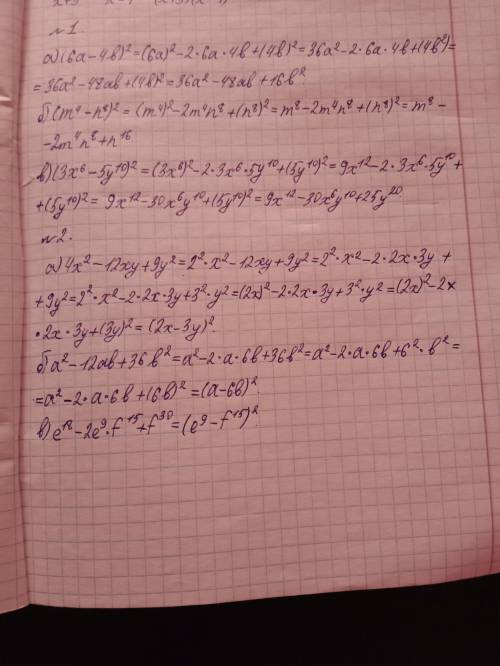 №1
а) (6a-4b)²=(6a)²-2·6a·4b+(4b)²=36a²-2·6a·4b+(4b²)=
=36a²-48ab+(4b)²=36a²-48ab+16b²
б) (m⁴-n⁸)²=(m⁴)²-2m⁴n⁸+(n⁸)²=m⁸-2m⁴n⁸+(n⁸)²=m⁸-
-2m⁴n⁸+n¹⁶
в) (3x⁶-5y¹⁰)²=(3x⁶)²-2·3x⁶·5y¹⁰+(5y¹⁰)²=9x¹²-2·3x⁶·5y¹⁰+
+(5y¹⁰)²=9x¹²-30x⁶y¹⁰+(5y¹⁰)²=9x¹²-30x⁶y¹⁰+25y²⁰
№2.
а) 4x²-12xy+9y²=2²·x²-12xy+9y²=2²·x²-2·2x·3y+
+9y²=2²·x²-2·2x·3y+3²·y²=(2x)²-2·2x·3y+3²·y²=(2x)²-2×
·2x·3y+(3y)²=(2x-3y)².
б) a²-12ab+36b²=a²-2·a·6b+36b²=a²-2·a·6b+6²·b²=
=a²-2·a·6b+(6b)²=(a-6b)².
в) e¹⁸-2e⁹·f¹⁵+f³⁰=(e⁹-f¹⁵)².